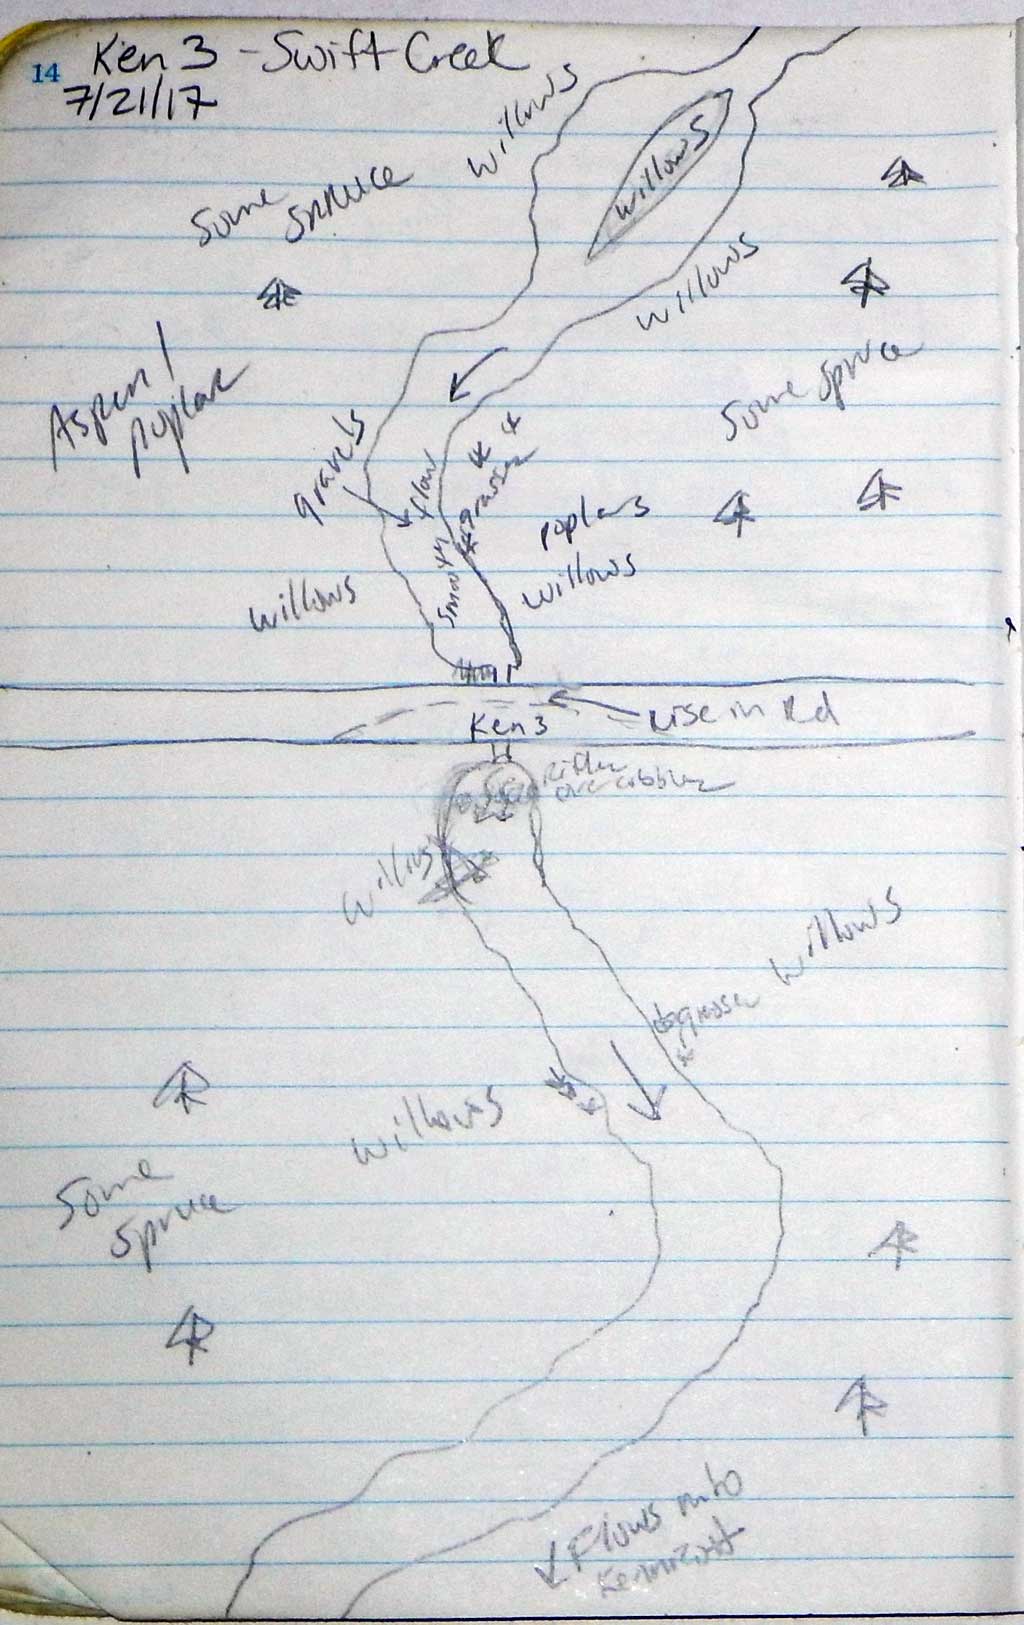 14 Ken 3 - Swift Creek
7/21/17
willows
Some
spruce
willows
willows
Aspen /
poplar
Some spruce
gravels
flow
smooth
grasses
poplars
willows
willows
Rise in Rd
Ken 3
Riffles
over cobbles
willows
willows
grasses
willows
Some
Spruce
Flows into
Kennicott